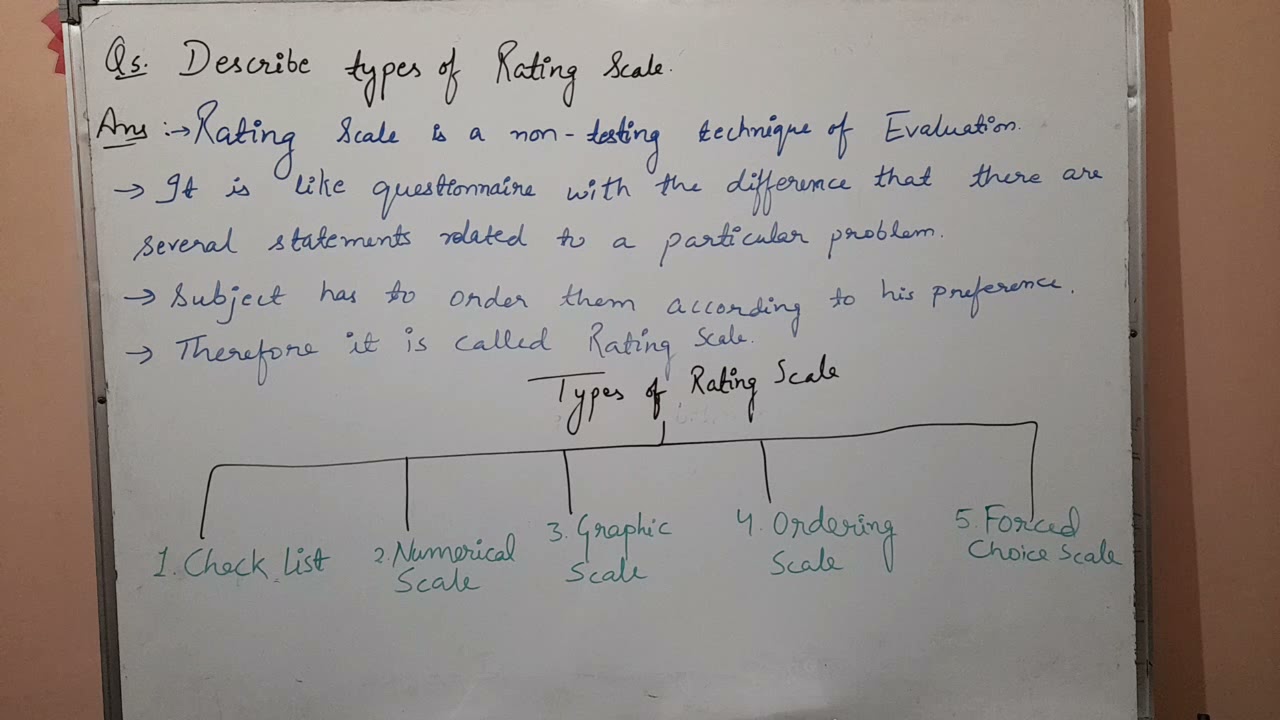 Qs. Describe types of Rating Scale.
Ans :→ Rating Scale is a non-testing technique of Evaluation.
→ It is like questionnaire with the difference that there are
several statements related to a particular problem.
→ Subject has to order them according to his preference.
→ Therefore it is called Rating Scale.
Types of Rating Scale
1. Check List
2. Numerical
Scale
3. Graphic
Scale
4. Ordering
Scale
5. Forced
Choice Scale